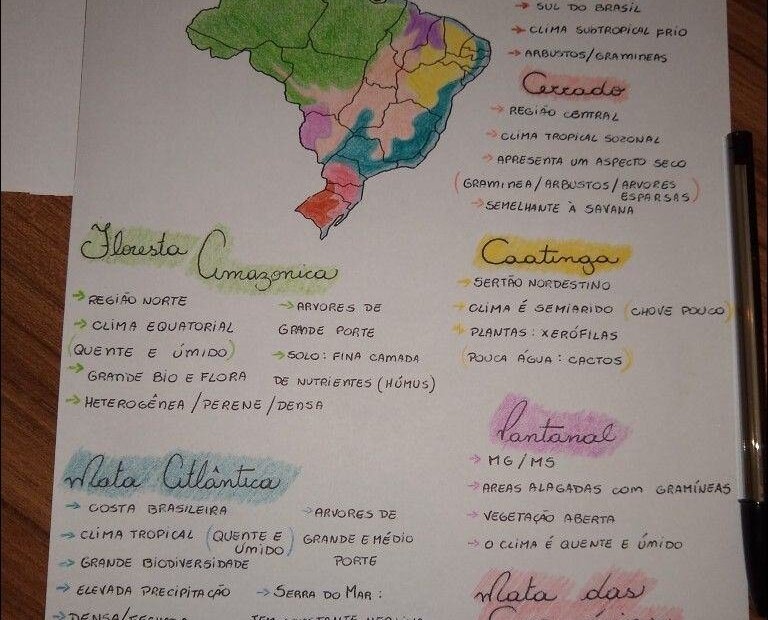 → SUL DO BRASIL
→ CLIMA SUBTROPICAL FRIO
→ ARBUSTOS/GRAMINEAS
Cerrado
→ REGIÃO CENTRAL
→ CLIMA TROPICAL SOZONAL
→ APRESENTA UM ASPECTO SECO
(GRAMINEA/ARBUSTOS/ARVORES
ESPARSAS)
→ SEMELHANTE À SAVANA
Floresta Amazonica
→ REGIÃO NORTE
→ CLIMA EQUATORIAL
(QUENTE E ÚMIDO)
→ GRANDE BIO E FLORA
→ HETEROGÊNEA/PERENE/DENSA
→ ARVORES DE
GRANDE PORTE
→ SOLO: FINA CAMADA
DE NUTRIENTES (HÚMUS)
Caatinga
→ SERTÃO NORDESTINO
→ CLIMA É SEMIARIDO (CHOVE POUCO)
→ PLANTAS: XERÓFILAS
(POUCA ÁGUA: CACTOS)
Pantanal
→ MG/MS
→ AREAS ALAGADAS COM GRAMÍNEAS
→ VEGETAÇÃO ABERTA
→ O CLIMA É QUENTE E ÚMIDO
Mata Atlântica
→ COSTA BRASILEIRA
→ CLIMA TROPICAL (QUENTE E
ÚMIDO)
→ GRANDE BIODIVERSIDADE
→ ELEVADA PRECIPITAÇÃO
→ ARVORES DE
GRANDE E MÉDIO
PORTE
→ SERRA DO MAR:
Mata das